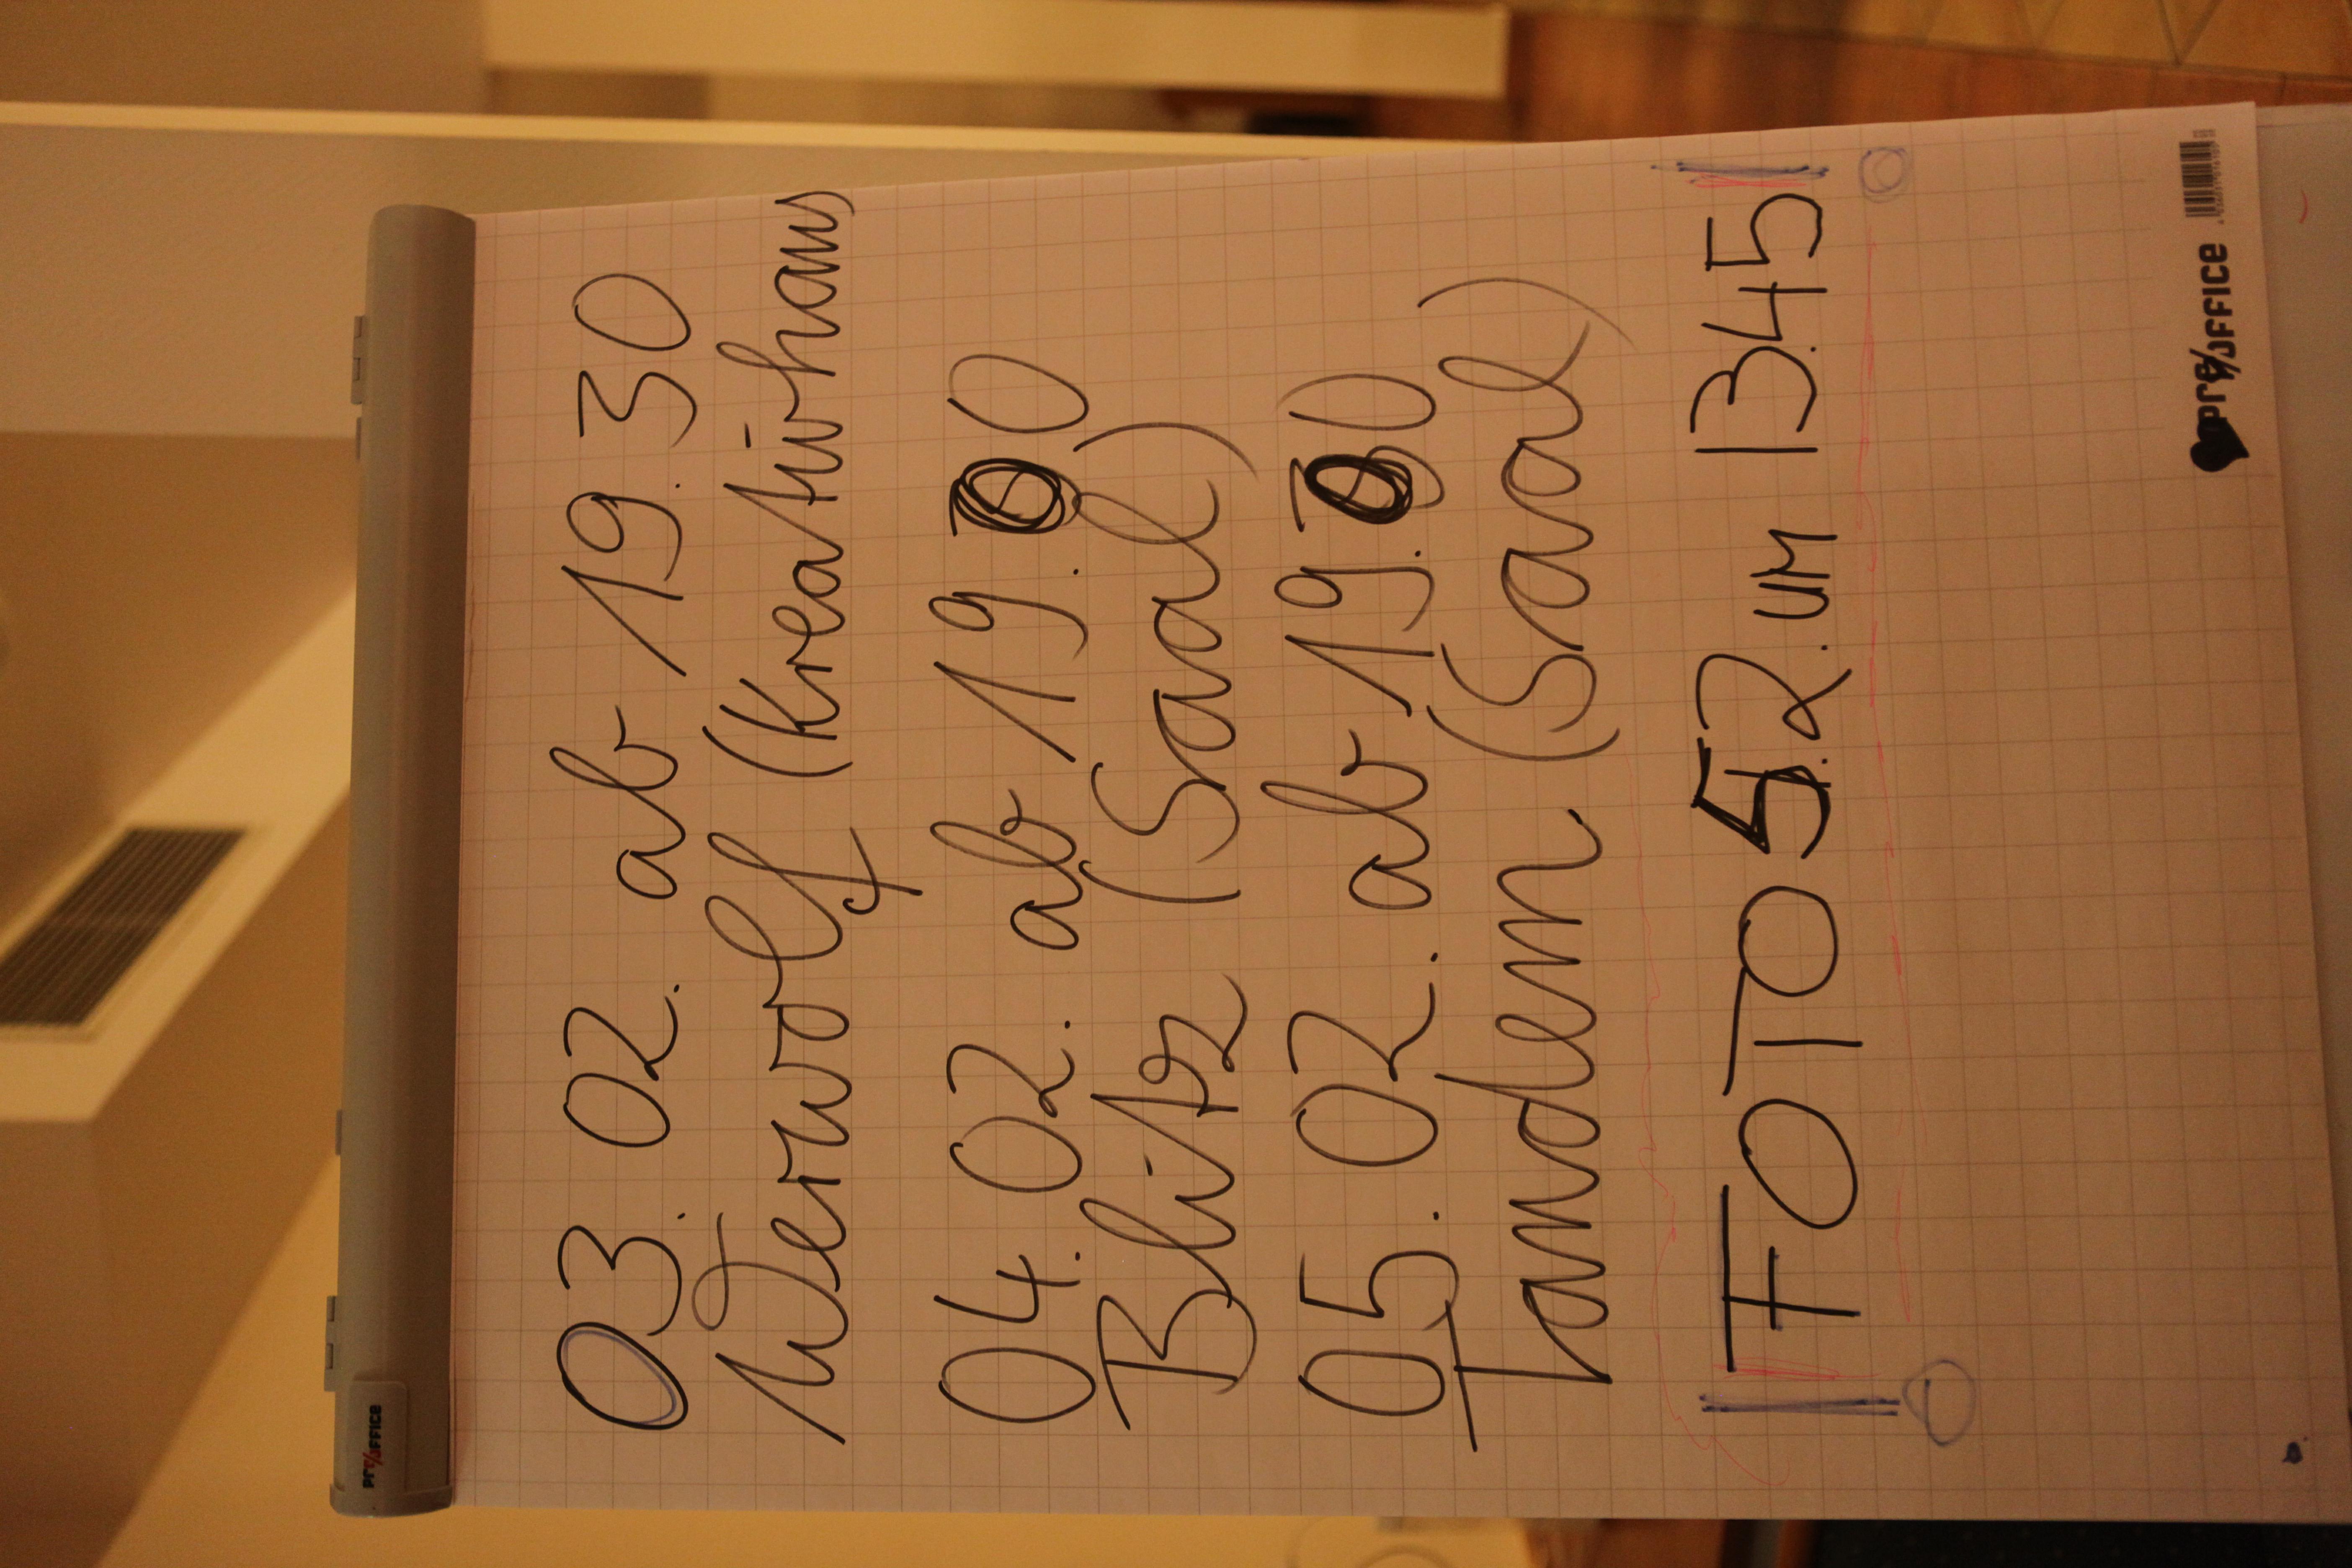 pro/office
03. 02. ab 19.30
Werwolf (Kreativhaus)
04. 02. ab 19.00
Blitz (Saal)
05. 02. ab 19.00
Tandem (Saal)
! FOTO 5.2. UM 13.45 !
pro/office